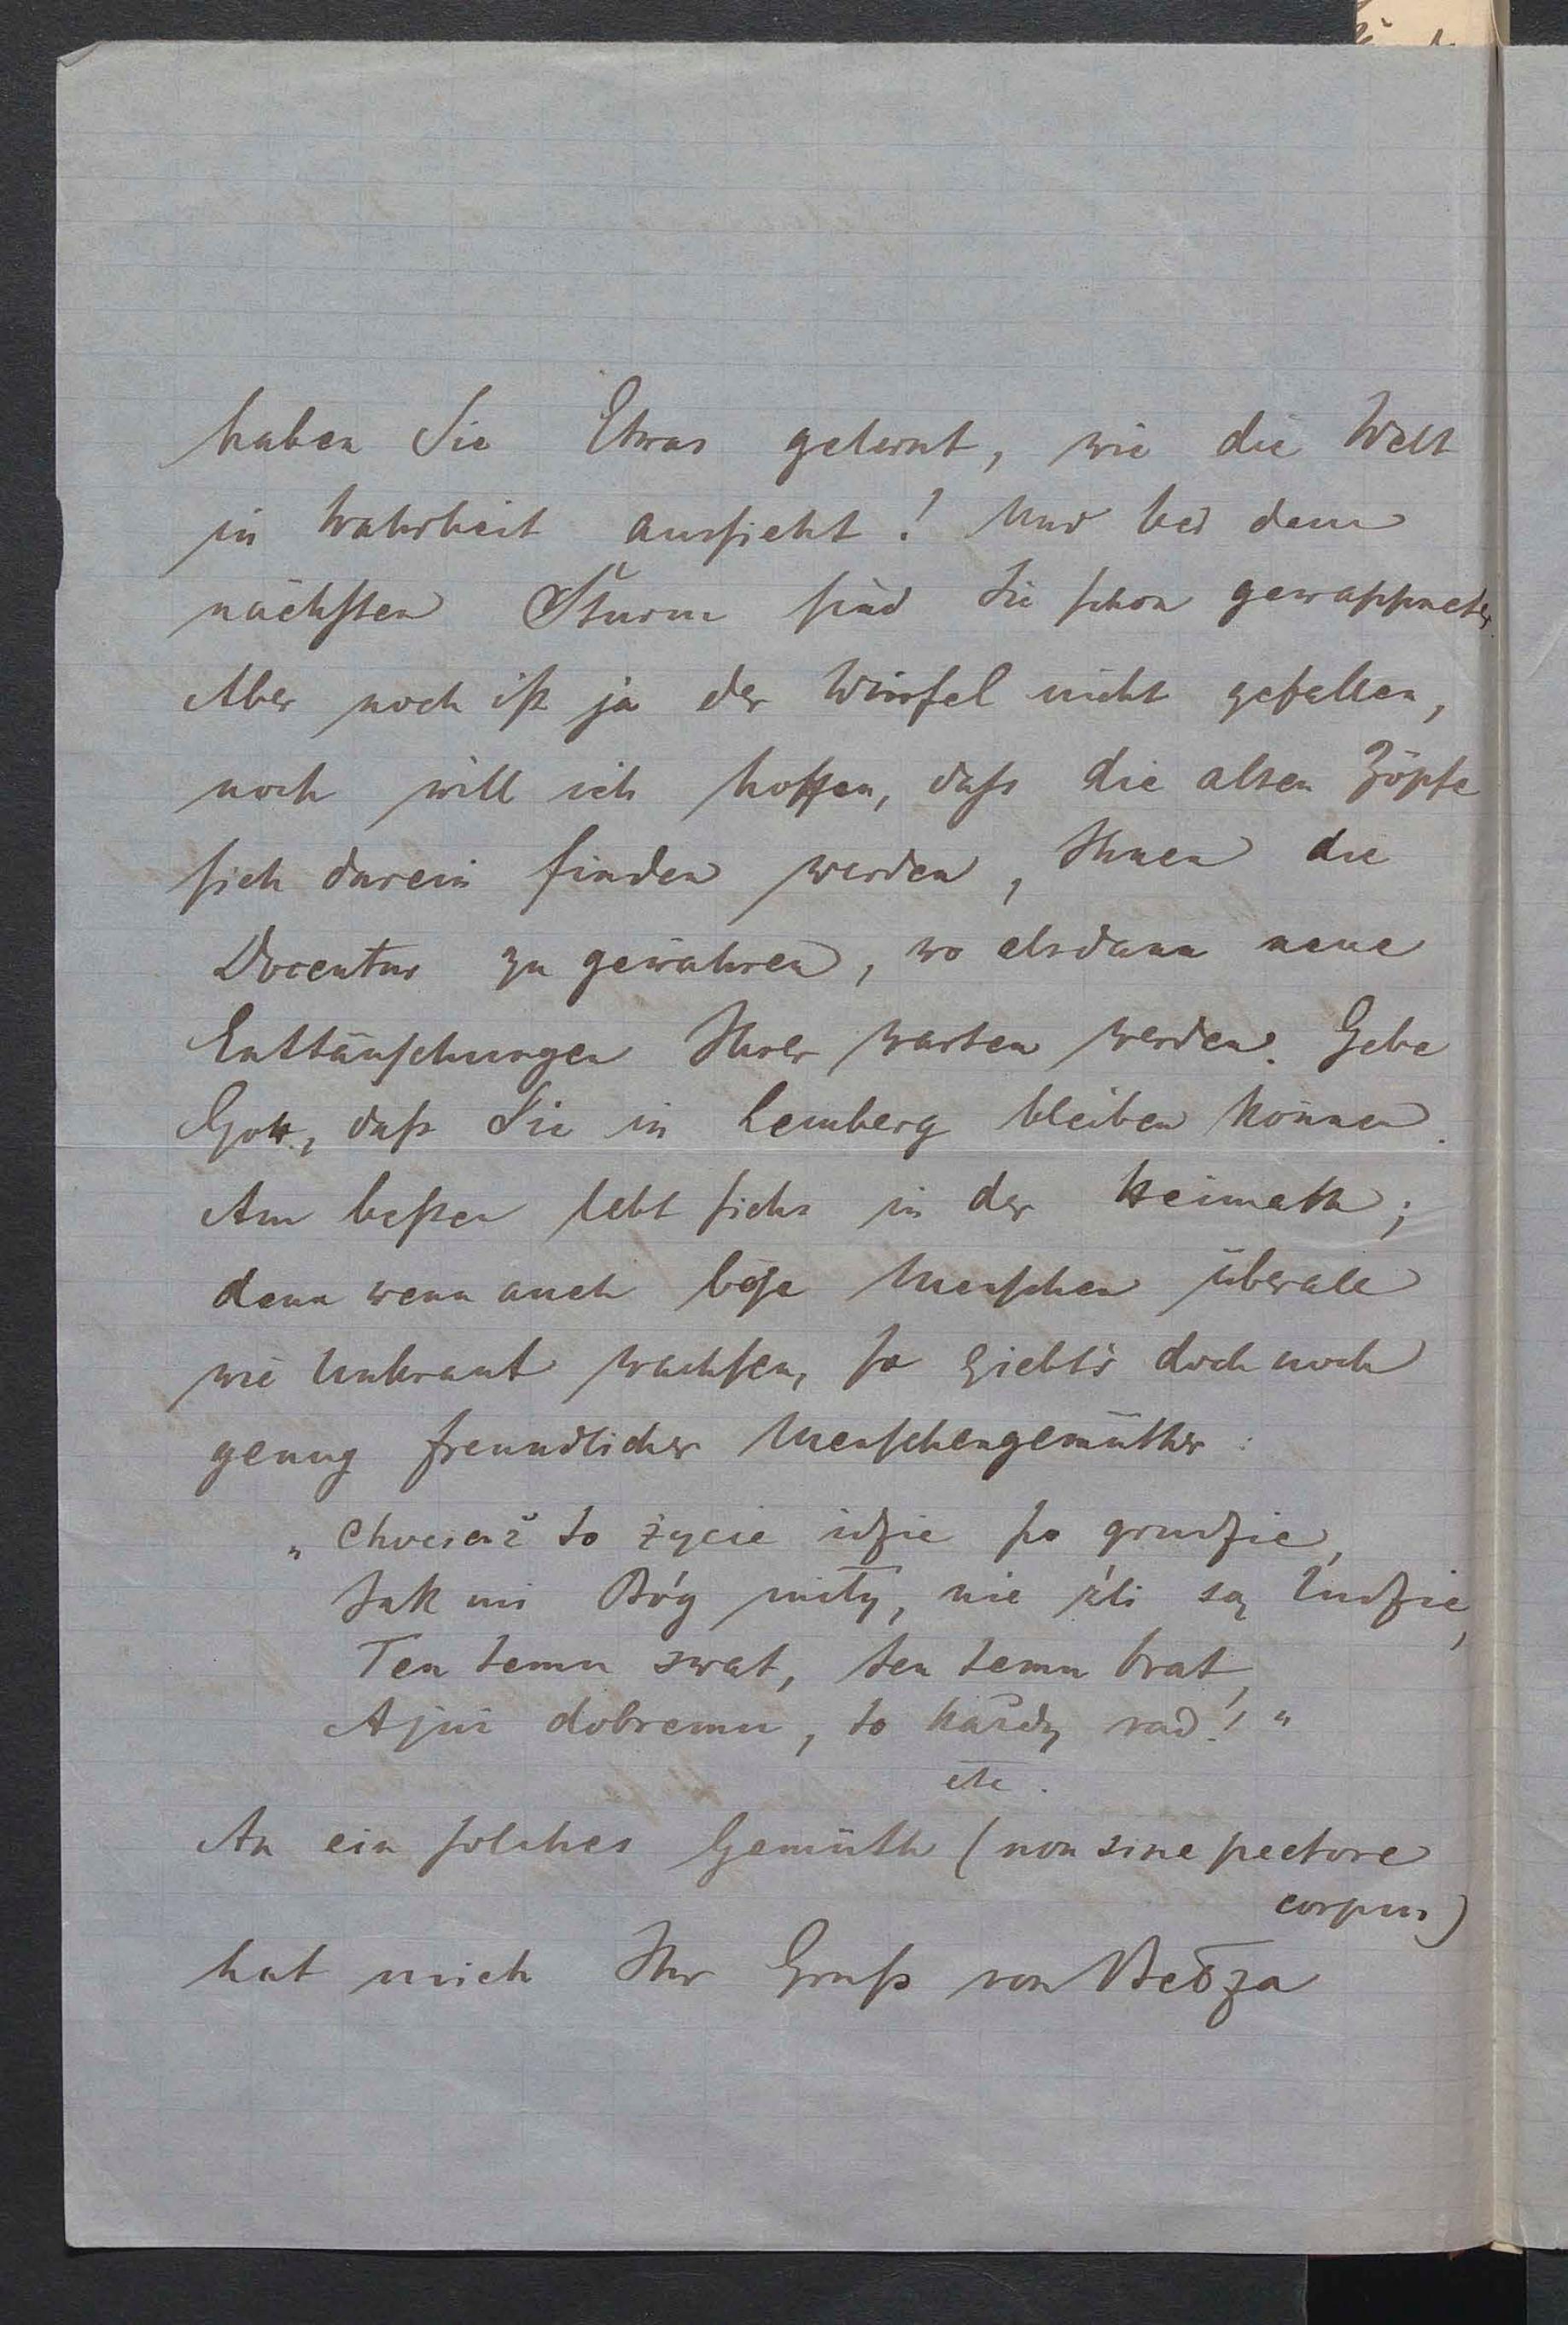 haben Sie Etwas gelernt, wie die Welt
in Wahrheit aussieht! Und bei dem
nächsten Sturm sind Sie schon gewappneter.
Aber noch ist ja der Würfel nicht gefallen,
noch will ich hoffen, dass die alten Zöpfe
sich darein finden werden, Ihnen die
Docentur zu gewähren, wo alsdann neue
Enttäuschungen Ihrer warten werden. Gebe
Gott, dass Sie in Lemberg bleiben können.
Am besten lebt sichs in der Heimath;
denn wenn auch böse Menschen überall
wie Unkraut wachsen, so giebt's doch noch
genug freundlicher Menschengemüther:
„Chociaż to życie idzie po grudzie,
Jak mi Bóg miły, nie źli są ludzie,
Ten temu swat, ten temu brat,
A juź dobremu, to każdy rad!"
etc.
An ein solches Gemüth (non sine pectore
corpus)
hat mich Ihr Gruss von